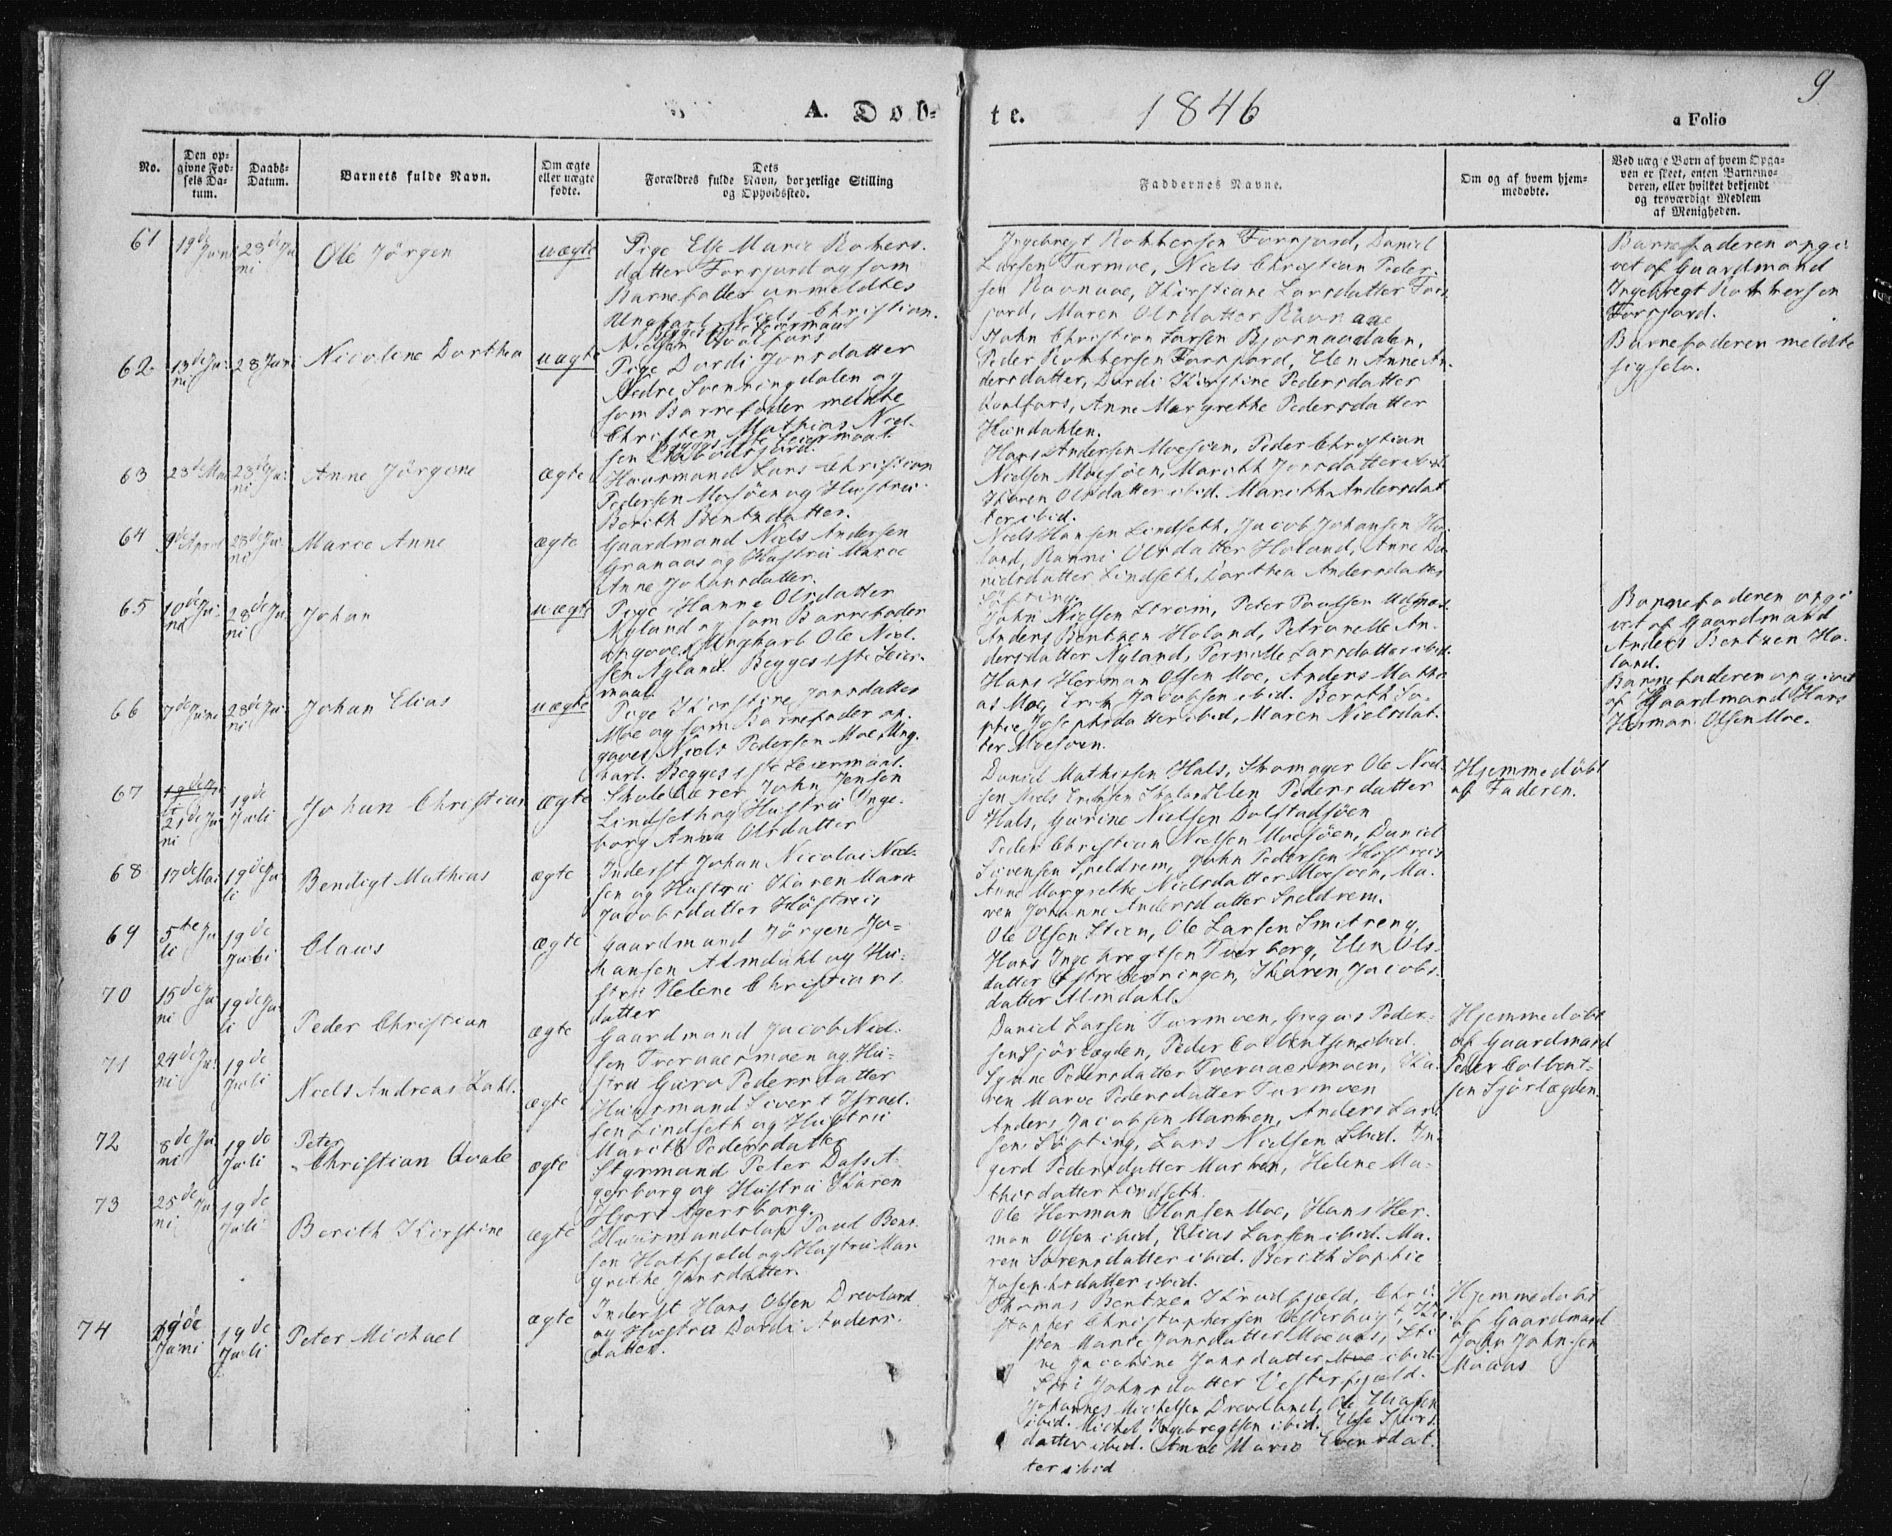 9
A. Dob-
te.
1846
a Folio
No.
Den op-
givne Fød-
sels Da-
tum.
Daabs-
Datum.
Barnets fulde Navn.
Om ægte
eller uægte
fødte.
Dets
Forældres fulde Navn, borgerlige Stilling
og Opholdssted.
Faddernes Navne.
Om og af hvem hjem-
medøbte.
Ved uægte Børn af hvem Opga-
ven er skeet, enten Barnemo-
deren, eller hvilket bekjendt
og troværdigt Medlem
af Menigheden.
61
19de Juni
28de Ju
ni
Ole Jörgen
uægte
Pige Else Marie Robers-
datter Forsjord og som
Barnefader anmeldtes
Ungkarl Niels Christian
Nielsen Qvalfors
Begges 1ste Leiermaal
Ingebregt Robbersen Forsjord, Daniel
Larsen Turmoe, Niels Christian Peder-
sen Ravnaae, Kirstiane Larsdatter Fors
jord, Maren Olsdatter Ravnaae
Barnefaderen opgi
vet af Gaardmand
Ingebregt Robbersen
Forsjord.
62
13de Ju
ni
28 Juni
Nicoline Dorthea
uægte
Pige Dordi Jonsdatter
Nedre Svenningdalen og
som Barnefader meldte
Christen Mathias Niel-
sen
Begges 1ste Leiermaal.
John Christian Larsen Bjornaadalen,
Peder Robbersen Forsjord, Elen Anne An-
dersdatter, Dordi Kirstine Pedersdatter
Qvalfors, Anne Margrethe Pedersdatter
Hundahlen.
Barnefaderen meldte
sig selv.
63
23de Mai
28de Ju
ni
Anne Jörgine
ægte
Huusmand Lars Christian
Pedersen Mosöen og Hustru
Berith Bentzdatter.
Hans Andersen Moesöen, Peder Christian
Nielsen Moesöen, Marith Jonsdatter ibid.
Karen Olsdatter ibid. Marith Andersdat
ter ibid.
64
9de April
28de Ju
ni
Maree Anne
ægte
Gaardmand Niels Andersen
Granaas og Hustru Maree
Anne Johansdatter.
Niels Hansen Lindseth, Jacob Johansen Ho
land, Ranni Olsdatter Holand, Anne Da
nielsdatter Lindseth, Dorthea Andersdatter
Söfting.
65
10de Ju-
ni
28de Ju
ni
Johan
uægte
Pige Hanne Olsdatter
Nyland og som Barnefader
angaves Ungkarl Ole Niel-
sen Nyland. Begges 1ste Leier-
maal.
John Nielsen Strøm, Peter Paulsen
Anders Bentzen Holand, Petronelle An-
dersdatter Nyland, Pernille Larsdatter ibid.
Barnefaderen opgi
vet af Gaardmand
Anders Bentzen Ho-
land.
66
7de Juni
28de Ju
ni
Johan Elias
uægte
Pige Kirstine Jonsdatter
Moe og som Barnefader op-
gaves Niels Pedersen Moe Ung-
karl. Begges 1ste Leiermaal.
Hans Herman Olsen Moe, Anders Mathi
as Moe, Erik Jacobsen ibid. Berith So-
phie Josephsdatter ibid, Maren Nielsdat-
ter Moesöen.
Barnefaderen opgivet
af Gaardmand Hans
Herman Olsen Moe.
67
21de Ju
ni
19de
Juli
Johan Christian
ægte
Skolelærer John Jensen
Lindseth og Hustru Inge-
borg Anna Olsdatter
Daniel Mathissen Hals, Skomager Ole Niel-
sen Niels Elen Pedersdatter
Hals, Gurine Nielsen Dolstadsöen
Hjemmedöbt
af Faderen.
68
17de Mai
19de Ju
li
Bendigt Mathias
ægte
Inderst Johan Nicolai Niel-
sen og Hustru Karen Marie
Jacobsdatter
Peder Christian Nielsen Moesöen, Daniel
Sivensen Speldrem, John Pedersen
Anne Margrethe Nielsdatter Moesöen, Ma-
ren Johanne Andersdatter Speldrem.
69
5te Ju
li
19de
Juli
Claus
ægte
Gaardmand Jörgen Jo-
hansen Almdahl og Hu-
stru Helene Christians
datter
Ole Olsen Steen, Ole Larsen Smitreng,
Hans Ingebregtsen Tverberg, Elen Ols-
datter, Karen Jacobs-
datter Almdahl.
70
15de Ju
ni
19de Ju
li
Peder Christian
ægte
Gaardmand Jacob Niel-
sen Tveraaermoen og Hu-
stru Guro Pedersdatter
Daniel Larsen Turmoen, Gregus Peder-
sen Sjörlægden, Peder Colbentsen ibid.
Synne Pedersdatter Tveraaermoen, Ka-
ren Maree Pedersdatter Turmoen
Hjemmedöbt
af Gaardmand
Peder Colbent-
sen Sjörlægden.
71
24de Ju
ni
19de
Juli
Niels Andreas Dahl
ægte
Huusmand Sivert Israel-
sen Lindseth og Hustru
Marith Pedersdatter
Anders Jacobsen Marken, Anders Lar
sen Söfting, Lars Nielsen ibid. In-
gerd Pedersdatter Marken, Helene Ma-
thisdatter Lindseth.
72
8de Ju
ni
19de
Juli
Peter
Christian Qvale
ægte
Styrmand Peter Dass A-
gerborg og Hustru Karen
Hjort Agersborg.
Ole Herman Hansen Moe, Hans Her-
man Olsen ibid, Elias Larsen ibid. Ma-
ren Sørensdatter ibid. Berith Sophie
Josephsdatter ibid.
73
25de Ju
ni
19de
Juli
Berith Kirstine
ægte
Huusmandslap Paul Bent-
sen Hatfjeld og Hustru Mar
grethe Jonsdatter.
Thomas Bentzen Krudfjeld, Chri
stopher Christophersen
sten Marte Jonsdatter Moeaas, Sti
ne Jacobine Jonsdatter ibid.
Siri Johnsdatter Vesterfjeld.
Hjemmedöbt
af Gaardmand
John Johnsen
Moaas
74
19de
Juni
19de
Juli
Peter Michael
ægte
Inderst Hans Olsen Drevland
og Hustru Dordi Anders-
datter.
Johannes Michelsen Drevland, Ole Eliasen
ibid. Michel Ingebregtsen ibid. Else Ifvers
datter ibid. Anne Marie Evensdat-
ter ibid